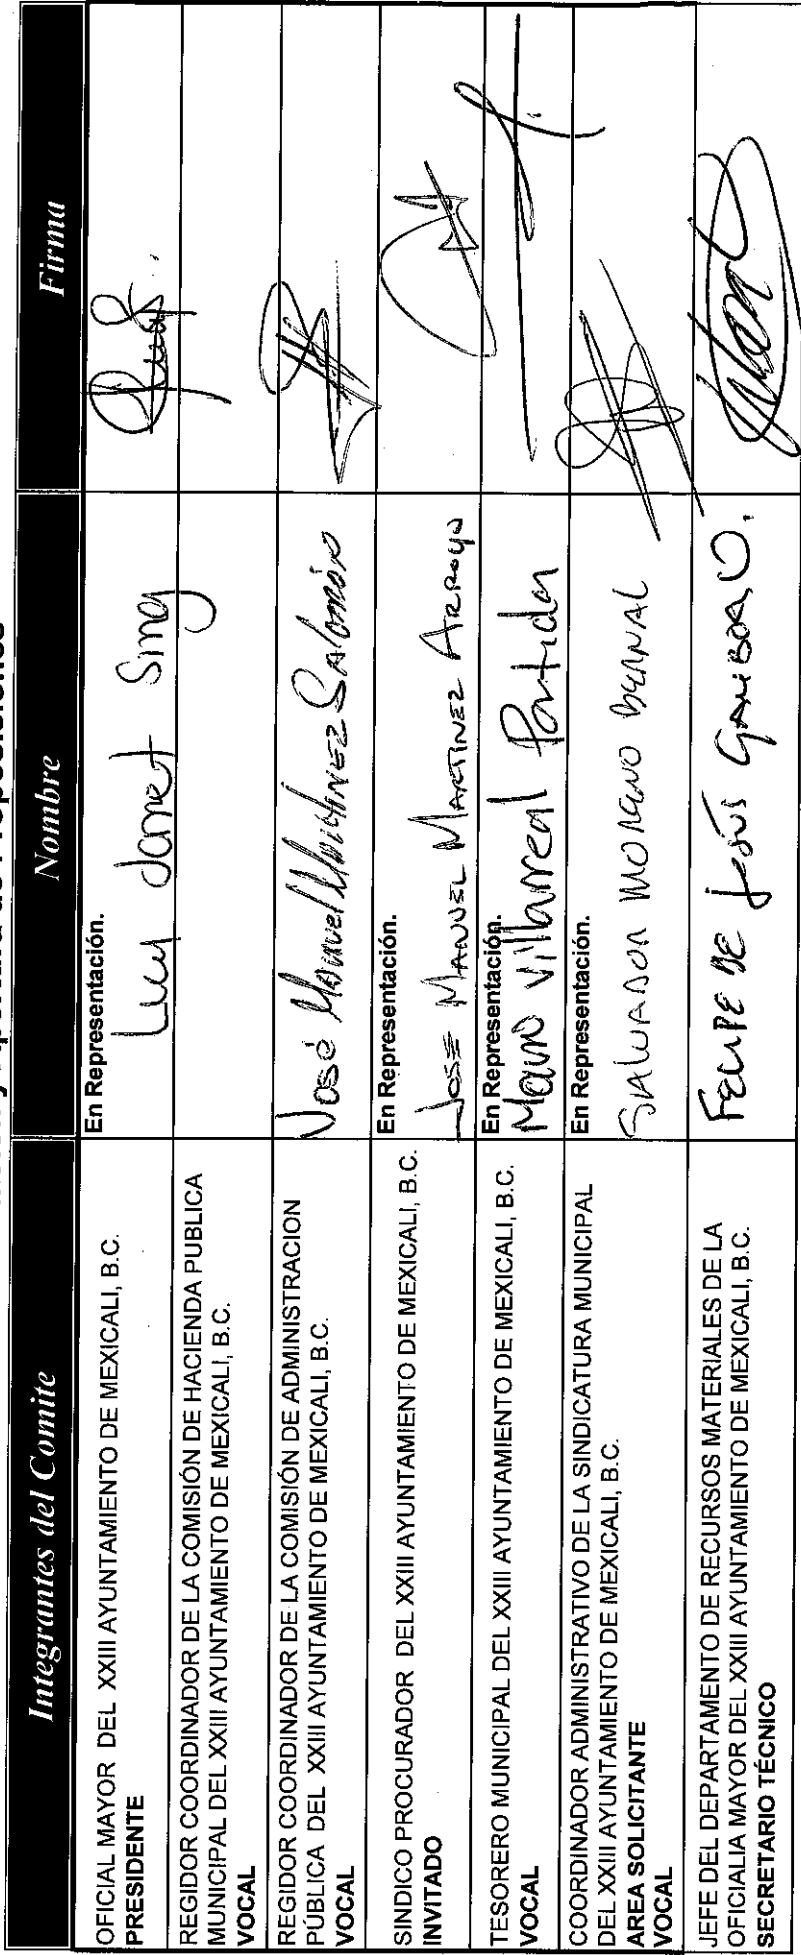 Integrantes del Comite
Nombre
Firma
OFICIAL MAYOR DEL XXIII AYUNTAMIENTO DE MEXICALI, B.C.
PRESIDENTE
En Representación.
Lucy Janet Sing
REGIDOR COORDINADOR DE LA COMISIÓN DE HACIENDA PUBLICA
MUNICIPAL DEL XXIII AYUNTAMIENTO DE MEXICALI, B.C.
VOCAL
REGIDOR COORDINADOR DE LA COMISIÓN DE ADMINISTRACION
PÚBLICA DEL XXIII AYUNTAMIENTO DE MEXICALI, B.C.
VOCAL
José Manuel Martinez Salomón
SINDICO PROCURADOR DEL XXIII AYUNTAMIENTO DE MEXICALI, B.C.
INVITADO
En Representación.
Jose Manuel Martinez Arroyo
TESORERO MUNICIPAL DEL XXIII AYUNTAMIENTO DE MEXICALI, B.C.
VOCAL
En Representación.
Mario Villarreal Partida
COORDINADOR ADMINISTRATIVO DE LA SINDICATURA MUNICIPAL
DEL XXIII AYUNTAMIENTO DE MEXICALI, B.C.
AREA SOLICITANTE
VOCAL
En Representación.
SALVADOR MORENO BERNAL
JEFE DEL DEPARTAMENTO DE RECURSOS MATERIALES DE LA
OFICIALIA MAYOR DEL XXIII AYUNTAMIENTO DE MEXICALI, B.C.
SECRETARIO TÉCNICO
FELIPE DE JESÚS GAMBOA O.